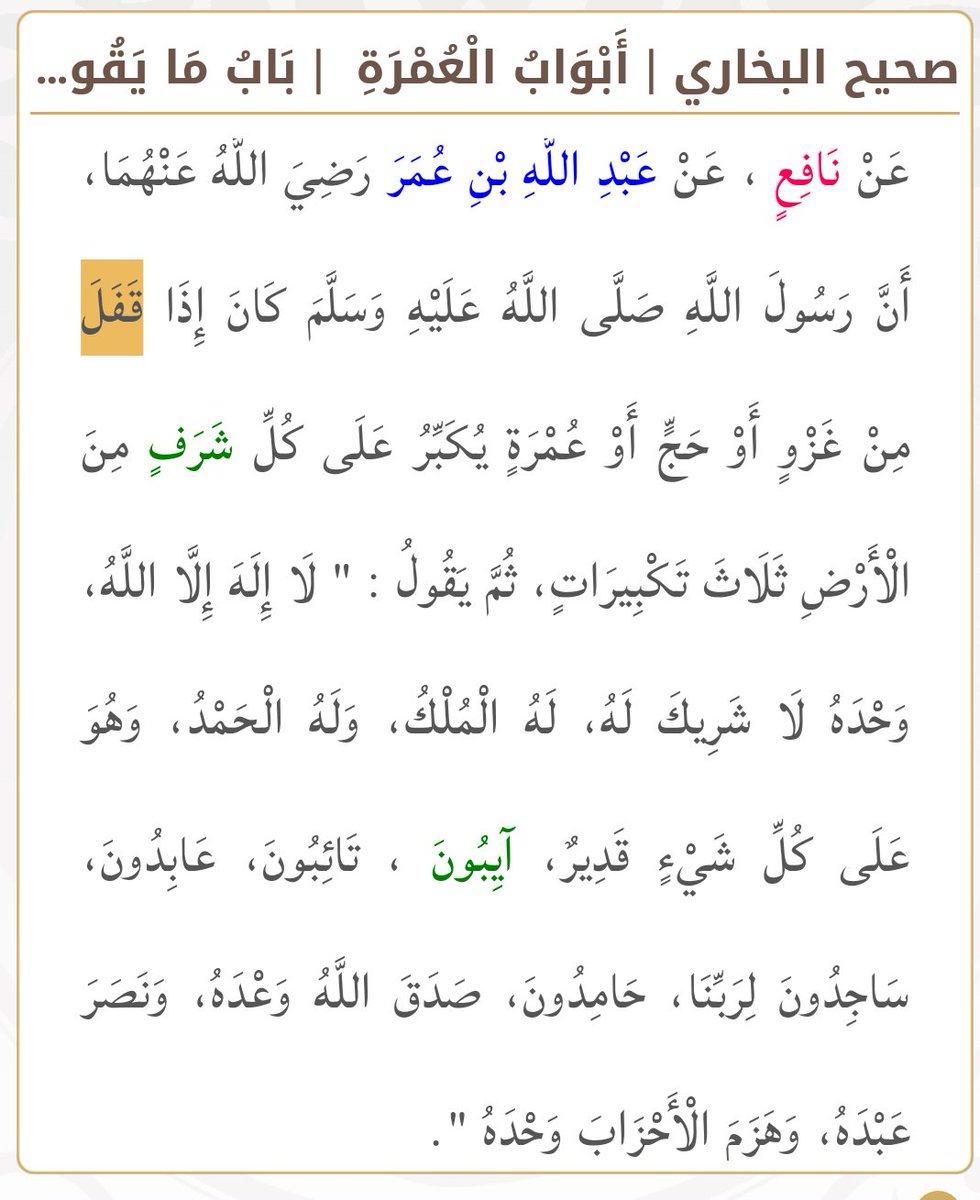 صحيح البخاري | أَبْوَابُ الْعُمْرَةِ | بَابُ مَا يَقُو...
عَنْ نَافِعٍ ، عَنْ عَبْدِ اللَّهِ بْنِ عُمَرَ رَضِيَ اللَّهُ عَنْهُمَا،
أَنَّ رَسُولَ اللَّهِ صَلَّى اللَّهُ عَلَيْهِ وَسَلَّمَ كَانَ إِذَا قَفَلَ
مِنْ غَزْوٍ أَوْ حَجٍّ أَوْ عُمْرَةٍ يُكَبِّرُ عَلَى كُلِّ شَرَفٍ مِنَ
الْأَرْضِ ثَلَاثَ تَكْبِيرَاتٍ، ثُمَّ يَقُولُ : " لَا إِلَهَ إِلَّا اللَّهُ،
وَحْدَهُ لَا شَرِيكَ لَهُ، لَهُ الْمُلْكُ، وَلَهُ الْحَمْدُ، وَهُوَ
عَلَى كُلِّ شَيْءٍ قَدِيرٌ، آيِبُونَ ، تَائِبُونَ، عَابِدُونَ،
سَاجِدُونَ لِرَبِّنَا، حَامِدُونَ، صَدَقَ اللَّهُ وَعْدَهُ، وَنَصَرَ
عَبْدَهُ، وَهَزَمَ الْأَحْزَابَ وَحْدَهُ ".